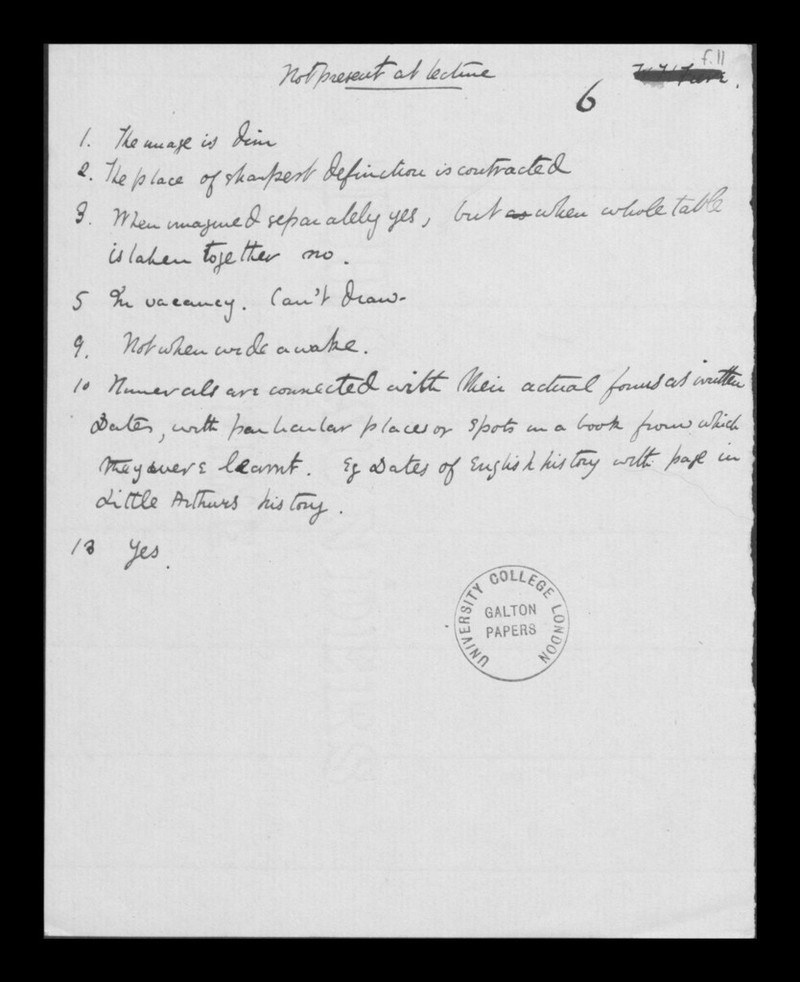 f.11
Not present at lecture
6
1. The image is dim
2. The place of sharpest definition is contracted
3. When imagined separately yes, but as when whole table
is taken together no.
5 In vacancy. Can't draw.
9. Not when wide awake.
10 Numerals are connected with their actual forms as written
Dates, with particular places or spots in a book from which
they were learnt. Eg Dates of English history with page in
Little Arthurs history.
13 Yes.
UNIVERSITY COLLEGE LONDON
GALTON
PAPERS